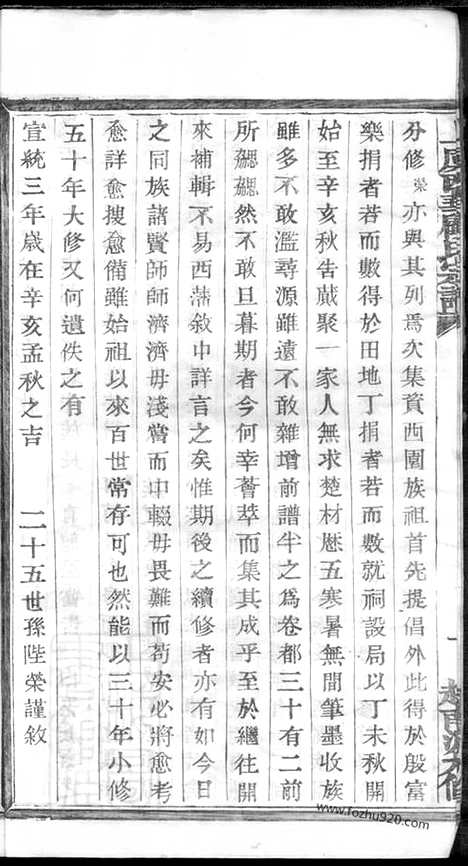 分修榮亦與其列爲次集資西園族祖首先提倡外此得於殷富
樂捐者若而數得於田地丁捐者若而數就祠設局以丁未秋開
始至辛亥秋告蕆聚一家人無求楚材歷五寒暑無間筆墨收族
雖多不敢濫尋源雖遠不敢雜增前譜半之爲卷都三十有二前
所鰓鰓然不敢旦暮期者今何幸薈萃而集其成乎至於繼往開
來補輯不易西蕅敘中詳言之矣惟期後之續修者亦有如今日
之同族諸賢師師濟濟毋淺嘗而中輟毋畏難而苟安必將愈考
愈詳愈搜愈備雖始祖以來百世常存可也然能以三十年小修
五十年大修又何遺佚之有
宣統三年歲在辛亥孟秋之吉 二十五世孫陛榮謹敘
www.fozhu920.com